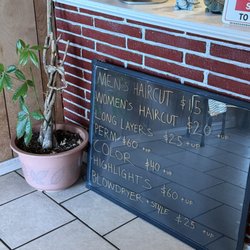 TO
MEN'S HAIRCUT $15
WOMEN'S HAIRCUT $20 +UP
LONG LAYER'S $25 +UP
PERM $60 +UP
COLOR $40 +UP
HIGHLIGHT'S $60 +UP
BLOWDRYER +STYLE $25 +UP